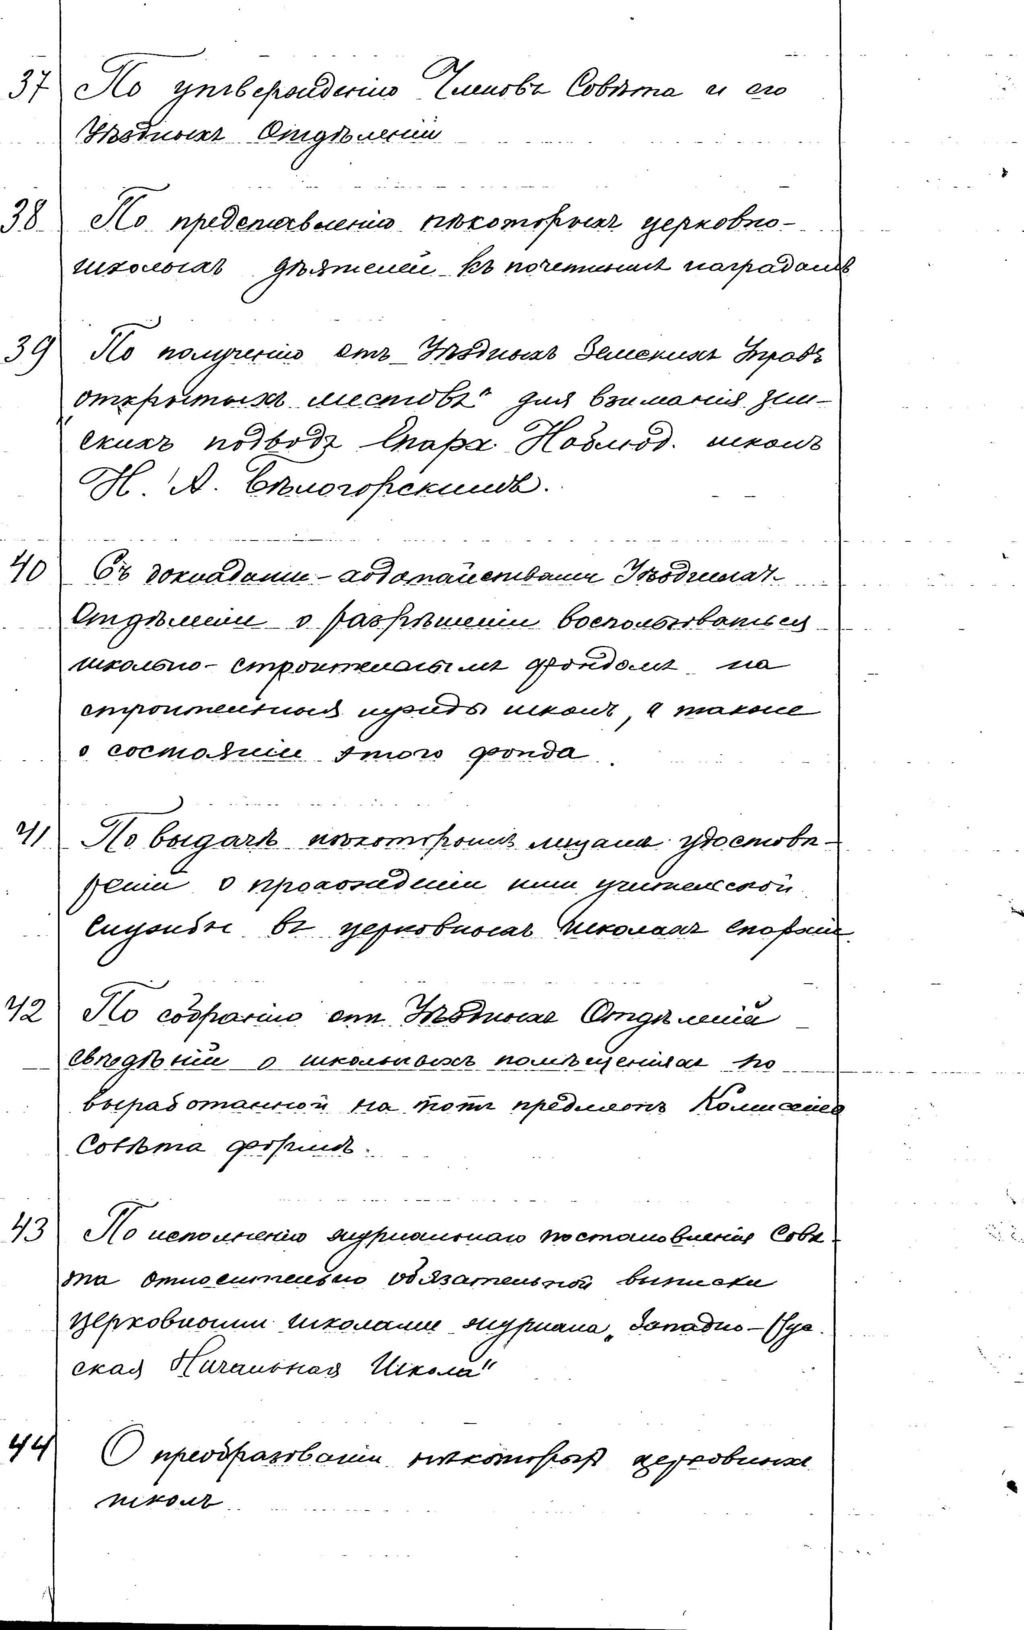 37 По утвержденію Членовъ Совѣта и его
Уѣздныхъ Отдѣленій
38 По представленію нѣкоторыхъ церковно-
школьныхъ дѣятелей къ почетнымъ наградамъ
39 По полученію отъ Уѣздныхъ Земскихъ Управъ
„открытыхъ листовъ" для взиманія зем-
скихъ подводъ Епарх. Наблюд. школъ
Н. А. Бѣлогорскимъ.
40 Съ докладами-ходатайствами Уѣздныхъ
Отдѣленій о разрѣшеніи воспользоваться
школьно-строительнымъ фондомъ на
строительныя нужды школъ, а также
о состояніи этого фонда.
41 По выдачѣ нѣкоторымъ лицамъ удостовѣ-
реній о прохожденіи ими учительской
службы въ церковныхъ школахъ епархіи.
42 По собранію отъ Уѣздныхъ Отдѣленій
свѣдѣній о школьныхъ помѣщеніяхъ по
выработанной на тотъ предметъ Комиссіей
Совѣта формѣ.
43 По исполненію журнальнаго постановленія Совѣ-
та относительно обязательной выписки
церковными школами журнала „Западно-Рус-
ская Начальная Школа"
44 О преобразованіи нѣкоторыхъ церковныхъ
школъ